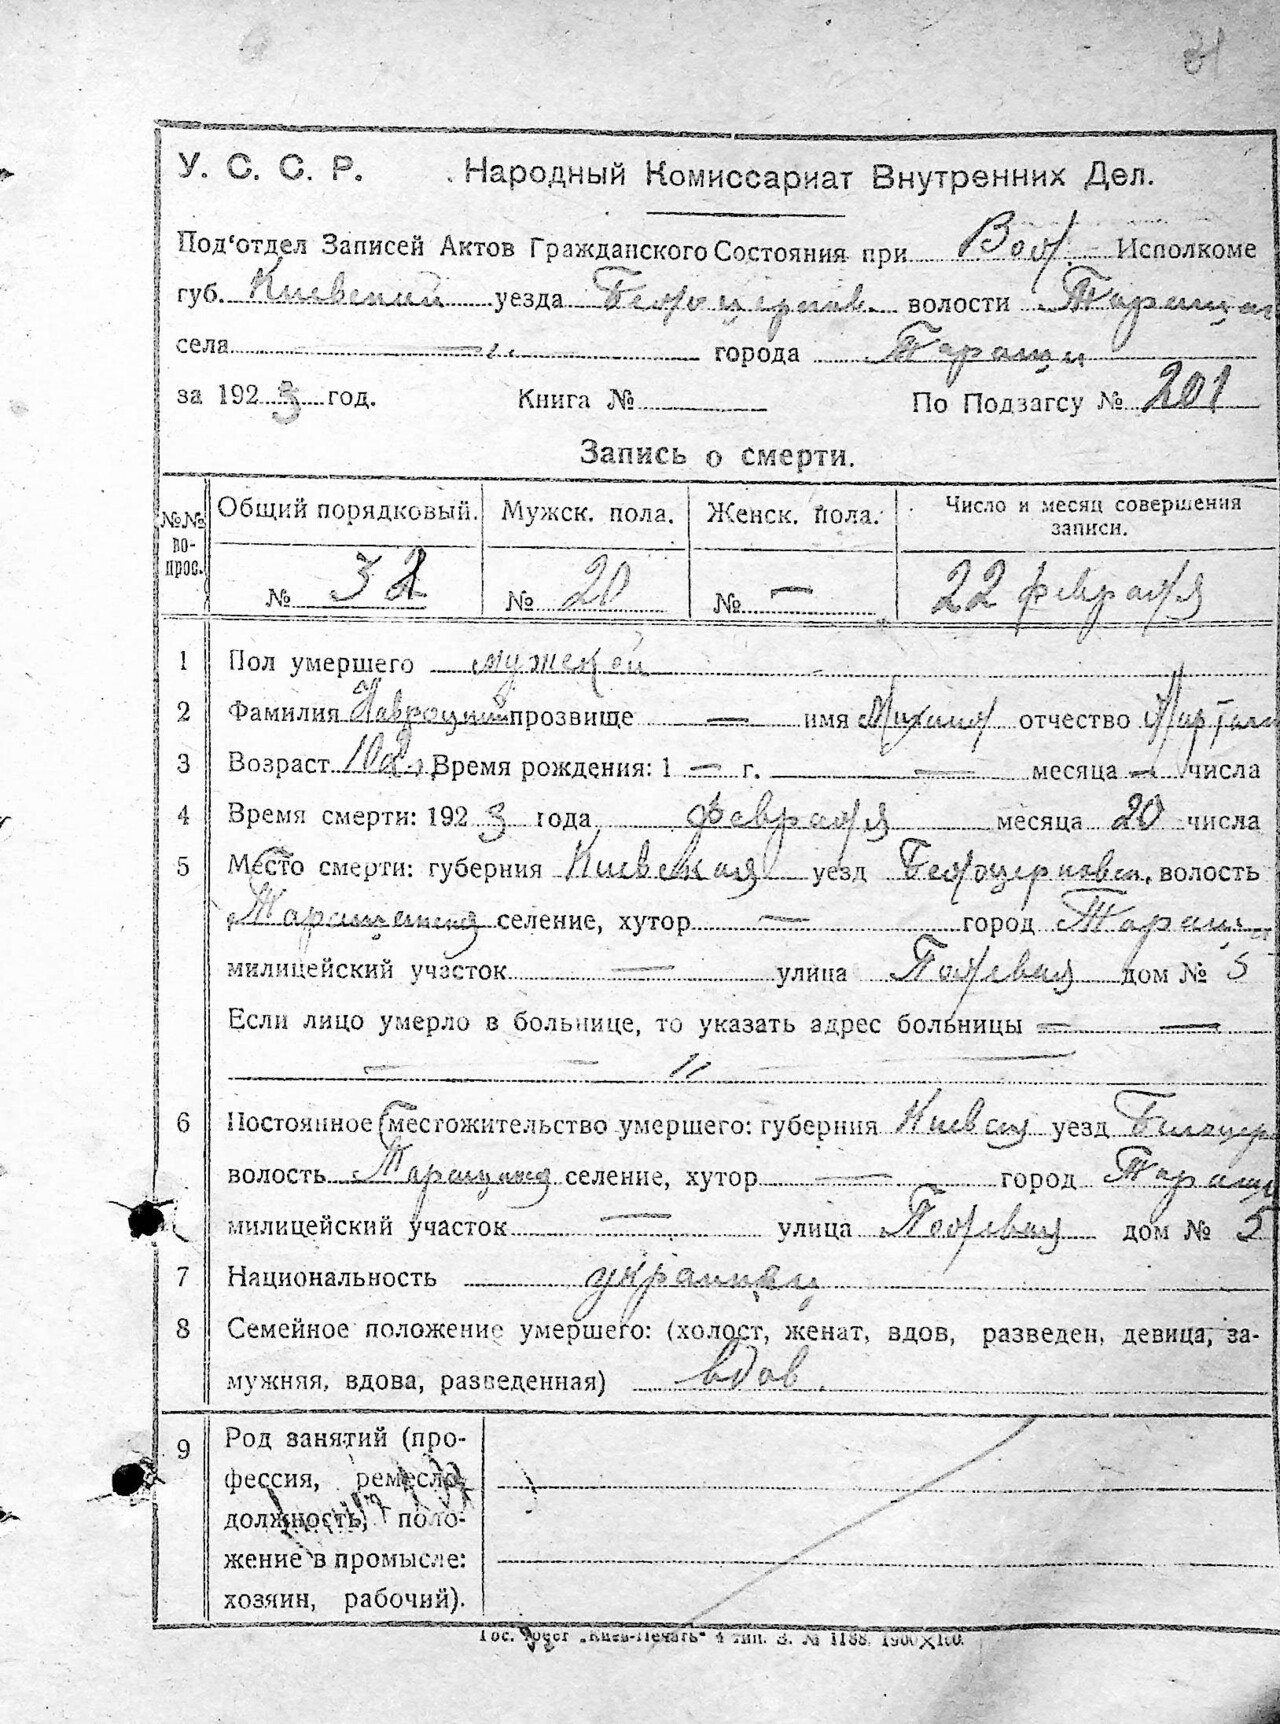 31
У. С. С. Р. Народный Комиссариат Внутренних Дел.
Под'отдел Записей Актов Гражданского Состояния при Вол. Исполкоме
губ. Киевской уезда Белоцерков. волости Таращан
села — „ — города Таращи
за 1923 год. Книга № По Подзагсу № 201
Запись о смерти.
№№ во-прос. Общий порядковый. Мужск. пола. Женск. пола. Число и месяц совершения записи.
№ 32 № 20 № — 22 февраля
1 Пол умершего мужской
2 Фамилия Навроцкий прозвище — имя Михаил отчество
3 Возраст Время рождения: 1 — г. — месяца — числа
4 Время смерти: 1923 года февраля месяца 20 числа
5 Место смерти: губерния Киевская уезд Белоцерковск. волость
Таращанская селение, хутор — город Таращ
милицейский участок — улица Полевая дом № 5
Если лицо умерло в больнице, то указать адрес больницы — —
— „ —
6 Постоянное местожительство умершего: губерния Киевск уезд Белоцер
волость Таращанск селение, хутор — город Таращ
милицейский участок — улица Полевая дом № 5
7 Национальность украинец
8 Семейное положение умершего: (холост, женат, вдов, разведен, девица, за-
мужняя, вдова, разведенная) вдов.
9 Род занятий (про-
фессия, ремесло,
должность, поло-
жение в промысле:
хозяин, рабочий).
Гос. Трест „Киев-Печать“ 4 тип. З. № 1188. 1900×100.